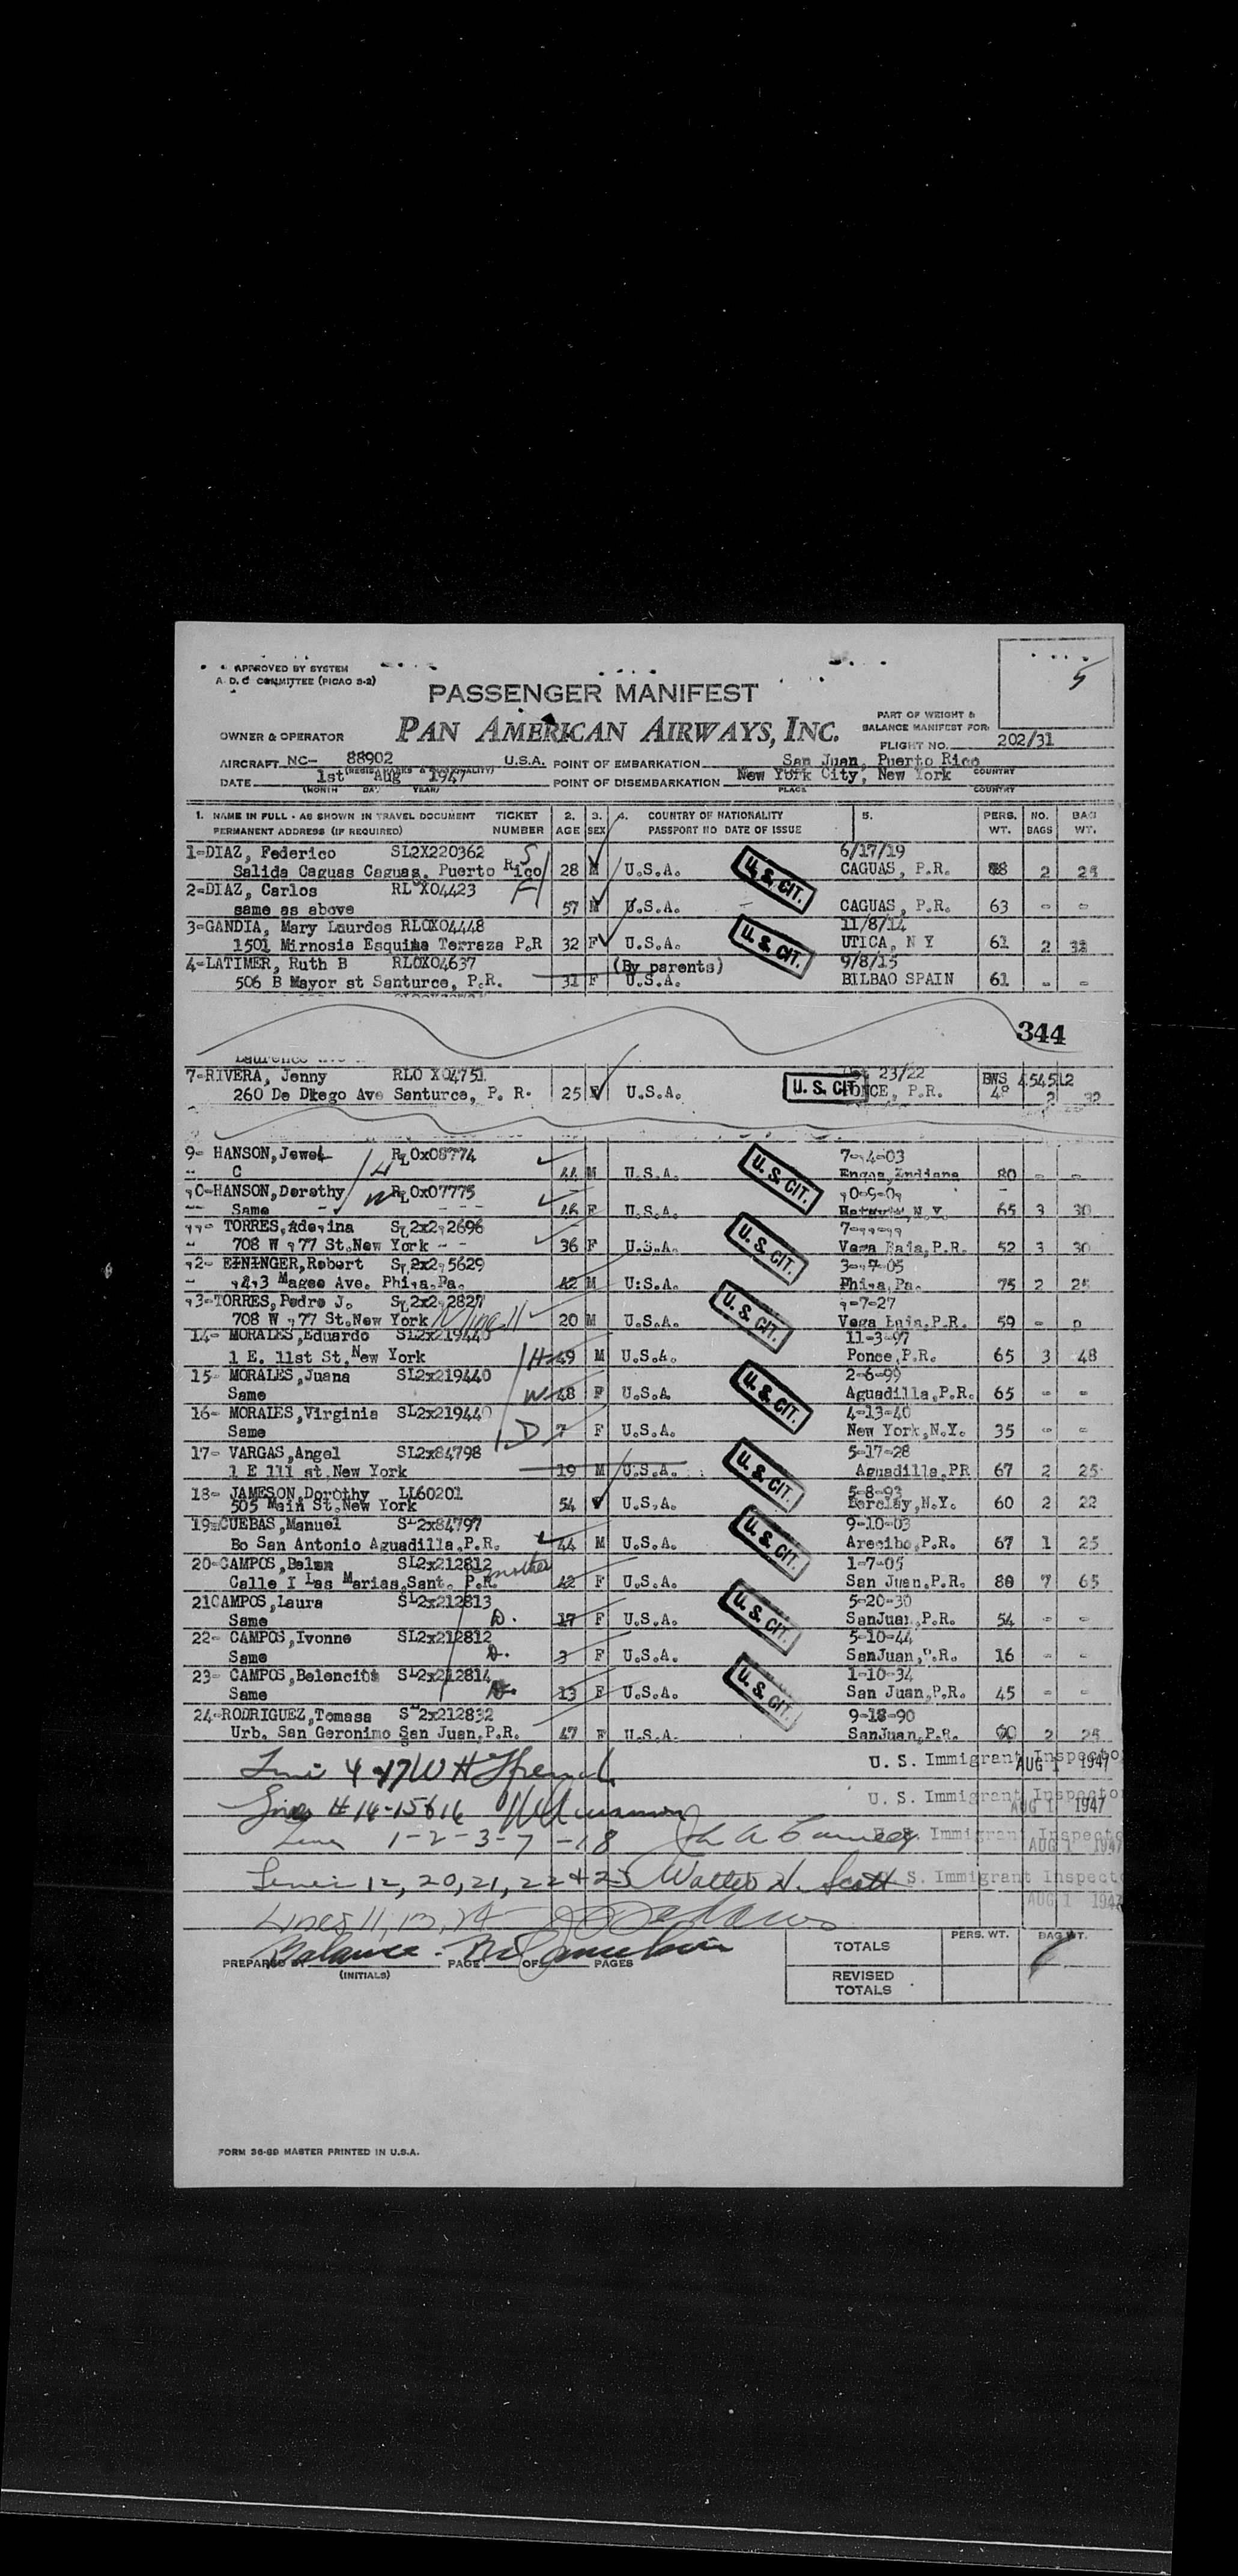 APPROVED BY SYSTEM
A.D.C COMMITTEE (PICAO 5-2)
5
PASSENGER MANIFEST
PAN AMERICAN AIRWAYS, INC.
PART OF WEIGHT &
BALANCE MANIFEST FOR:
OWNER & OPERATOR
FLIGHT NO. 202/31
AIRCRAFT NC- 88902 U.S.A. POINT OF EMBARKATION San Juan, Puerto Rico COUNTRY
DATE 1st Aug 1947 POINT OF DISEMBARKATION New York City, New York
(MONTH DAY YEAR) PLACE COUNTRY
1. NAME IN FULL - AS SHOWN IN TRAVEL DOCUMENT TICKET 2. 3. 4. COUNTRY OF NATIONALITY 5. PERS. NO. BAG
PERMANENT ADDRESS (IF REQUIRED) NUMBER AGE SEX PASSPORT NO DATE OF ISSUE WT. BAGS WT.
1-DIAZ, Federico SL2X220362 S 6/17/19
Salida Caguas Caguas, Puerto Rico 28 M U.S.A. U.S. CIT. CAGUAS, P.R. 2
2-DIAZ, Carlos X04423 F
same as above 57 M U.S.A. CAGUAS, P.R. 63 - -
3-GANDIA, Mary Lourdes RLOX04448 11/8/14
1501 Mirnosia Esquina Terraza P.R 32 F U.S.A. U.S. CIT. UTICA, N Y 61 2
4-LATIMER, Ruth B RLOX04637 (By parents) 9/8/15
506 B Mayor st Santurce, P.R. 31 F U.S.A. BILBAO SPAIN 61 - -
344
7-RIVERA, Jenny RLO X04751 23/22
260 De Diego Ave Santurce, P. R. 25 F U.S.A. U.S. CIT , P.R. 2 32
9- HANSON, Jewel 0x08774 H
C 44 M U.S.A. U.S. CIT. 80 - -
HANSON, Dorothy 0x07775 W
Same 46 F U.S.A. 65 3 30
TORRES, 2696
708 W 77 St. New York 36 F U.S.A. U.S. CIT. Vega Baja, P.R. 52 3 30
EININGER, Robert 5629
Magee Ave. Phila, Pa. 42 M U.S.A. Phila, Pa. 75 2 25
TORRES, Pedro J. 7-27
708 W 77 St. New York 20 M U.S.A. U.S. CIT. P.R. 59 -
14- MORALES, Eduardo SL2x219440 11-3-97
1 E. 11st St, New York H 49 M U.S.A. Ponce, P.R. 65 3 48
15- MORALES, Juana SL2x219440 2-6-99
Same W 48 F U.S.A U.S. CIT. Aguadilla, P.R. 65 - -
16- MORALES, Virginia SL2x219440 4-13-40
Same D 7 F U.S.A. New York, N.Y. 35 - -
17- VARGAS, Angel SL2x84798 5-17-28
1 E 111 st New York 19 M U.S.A. U.S. CIT. Aguadilla, PR 67 2 25
18- JAMESON, Dorothy LL60201 5-8-93
505 Main St. New York 54 U.S.A. N.Y. 60 2 22
19-CUEBAS, Manuel SL2x84797 9-10-03
Bo San Antonio Aguadilla, P.R. 44 M U.S.A. U.S. CIT. Arecibo, P.R. 67 1 25
20-CAMPOS, Belen SL2x212812 mother 1-7-05
Calle I Las Marias, Sant. P.R. 42 F U.S.A. San Juan, P.R. 80 7 65
21CAMPOS, Laura SL2x212813 5-20-30
Same D. 17 F U.S.A. U.S. CIT. SanJuan, P.R. 54 - -
22- CAMPOS, Ivonne SL2x212812 5-10-44
Same D. 3 F U.S.A. SanJuan, P.R. 16 - -
23- CAMPOS, Belencita SL2x212814 1-10-34
Same D. 13 F U.S.A. U.S. CIT. San Juan, P.R. 45 - -
24-RODRIGUEZ, Tomasa 2x212832 9-18-90
Urb. San Geronimo San Juan, P.R. 47 F U.S.A. SanJuan, P.R. 2 25
U. S. Immigrant Inspector
AUG 1 1947
Lines # 14-15 & 16 U. S. Immigrant Inspector
AUG 1 1947
Lines 1-2-3-7-18 Immigrant Inspector
AUG 1 1947
Lines 12, 20, 21, 22 + 23 Walter H. Scott S. Immigrant Inspector
AUG 1 1947
Lines 11, 13, 24
Balance
PREPARED BY PAGE OF PAGES
(INITIALS)
PERS. WT. BAG WT.
TOTALS
REVISED
TOTALS
FORM 36-89 MASTER PRINTED IN U.S.A.